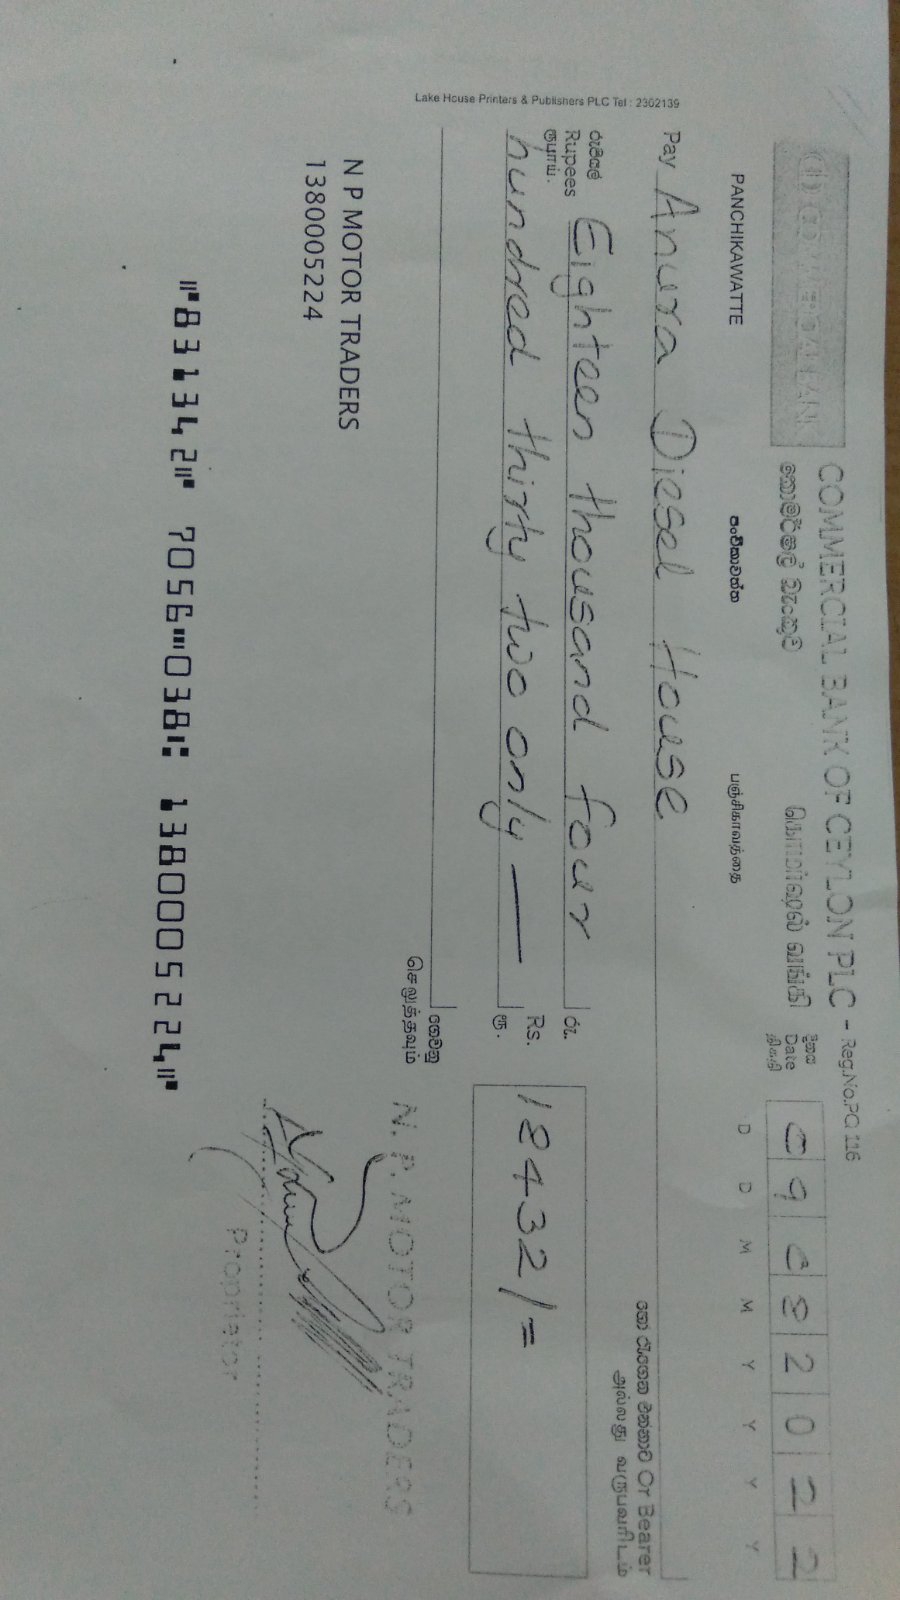 COMMERCIAL BANK OF CEYLON PLC - Reg.No.PQ 116
කොමර්ෂල් බැංකුව கொமர்ஷல் வங்கி
දිනය
Date
திகதி
09082022
D D M M Y Y Y Y
PANCHIKAWATTE පංචිකාවත්ත பஞ்சிகாவத்தை
Pay Anura Diesel House
හෝ රැගෙන එන්නාට Or Bearer
அல்லது வருபவரிடம்
රුපියල්
Rupees
ரூபாய்.
Eighteen thousand four
hundred thirty two only —
රු.
Rs.
ரூ.
18432/=
ගෙවනු
செலுத்தவும்
Lake House Printers & Publishers PLC Tel : 2302139
N P MOTOR TRADERS
1380005224
N. P. MOTOR TRADERS
Proprietor
⑈831342⑈ 7056⑉038⑆ 1380005224⑈